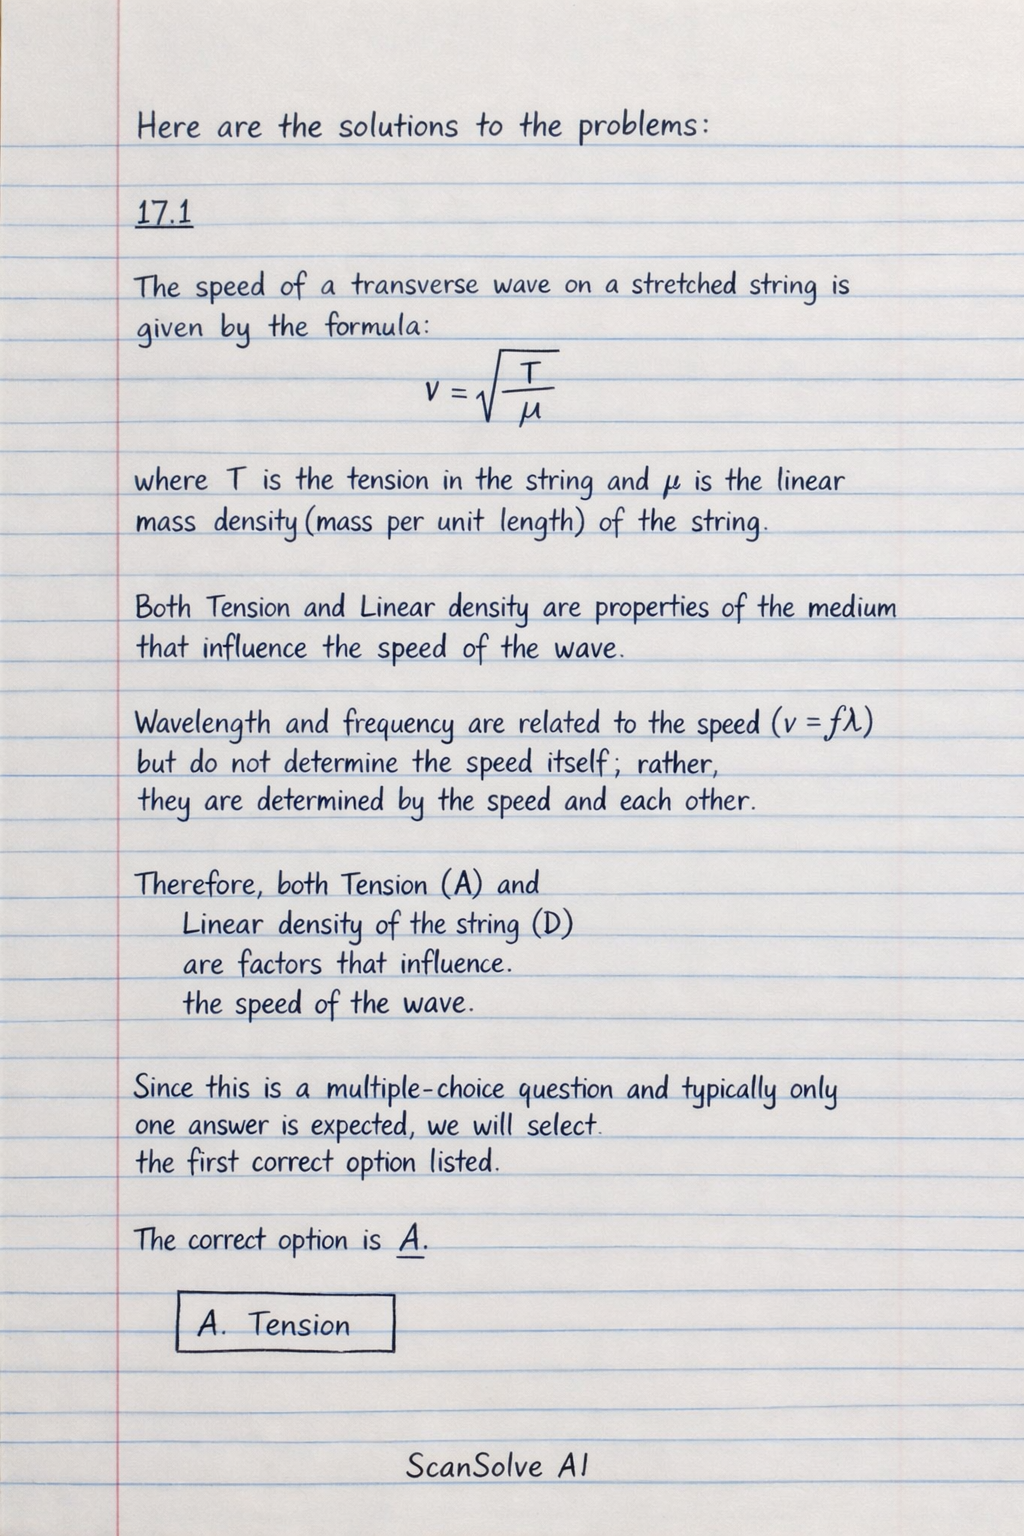 Here are the solutions to the problems:
17.1
The speed of a transverse wave on a stretched string is
given by the formula:
v = √(T/μ)
where T is the tension in the string and μ is the linear
mass density (mass per unit length) of the string.
Both Tension and Linear density are properties of the medium
that influence the speed of the wave.
Wavelength and frequency are related to the speed (v = fλ)
but do not determine the speed itself; rather,
they are determined by the speed and each other.
Therefore, both Tension (A) and
Linear density of the string (D)
are factors that influence.
the speed of the wave.
Since this is a multiple-choice question and typically only
one answer is expected, we will select.
the first correct option listed.
The correct option is A.
A. Tension
ScanSolve AI